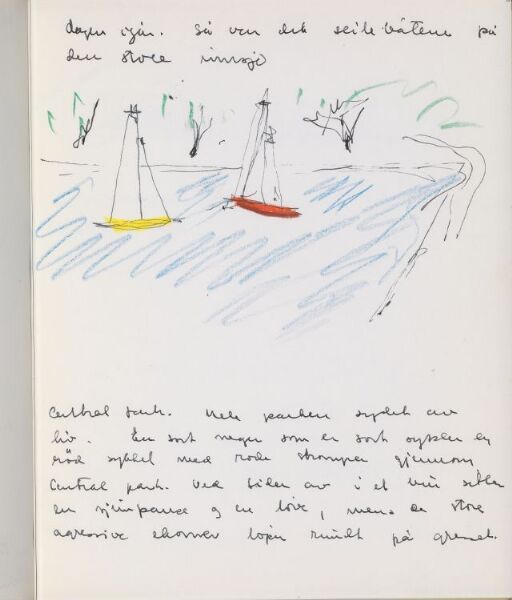 dagen igår. Så var det seile båtene på
den store innsjø
Central park. Hele parken sydet av
liv. En sort neger som er sort sykler en
rød sykkel med røde strømper gjennom
Central park. Ved siden av i et bur sitter
en sjimpanse og en løve, mens de store
agressive ekorner løper rundt på gresset.